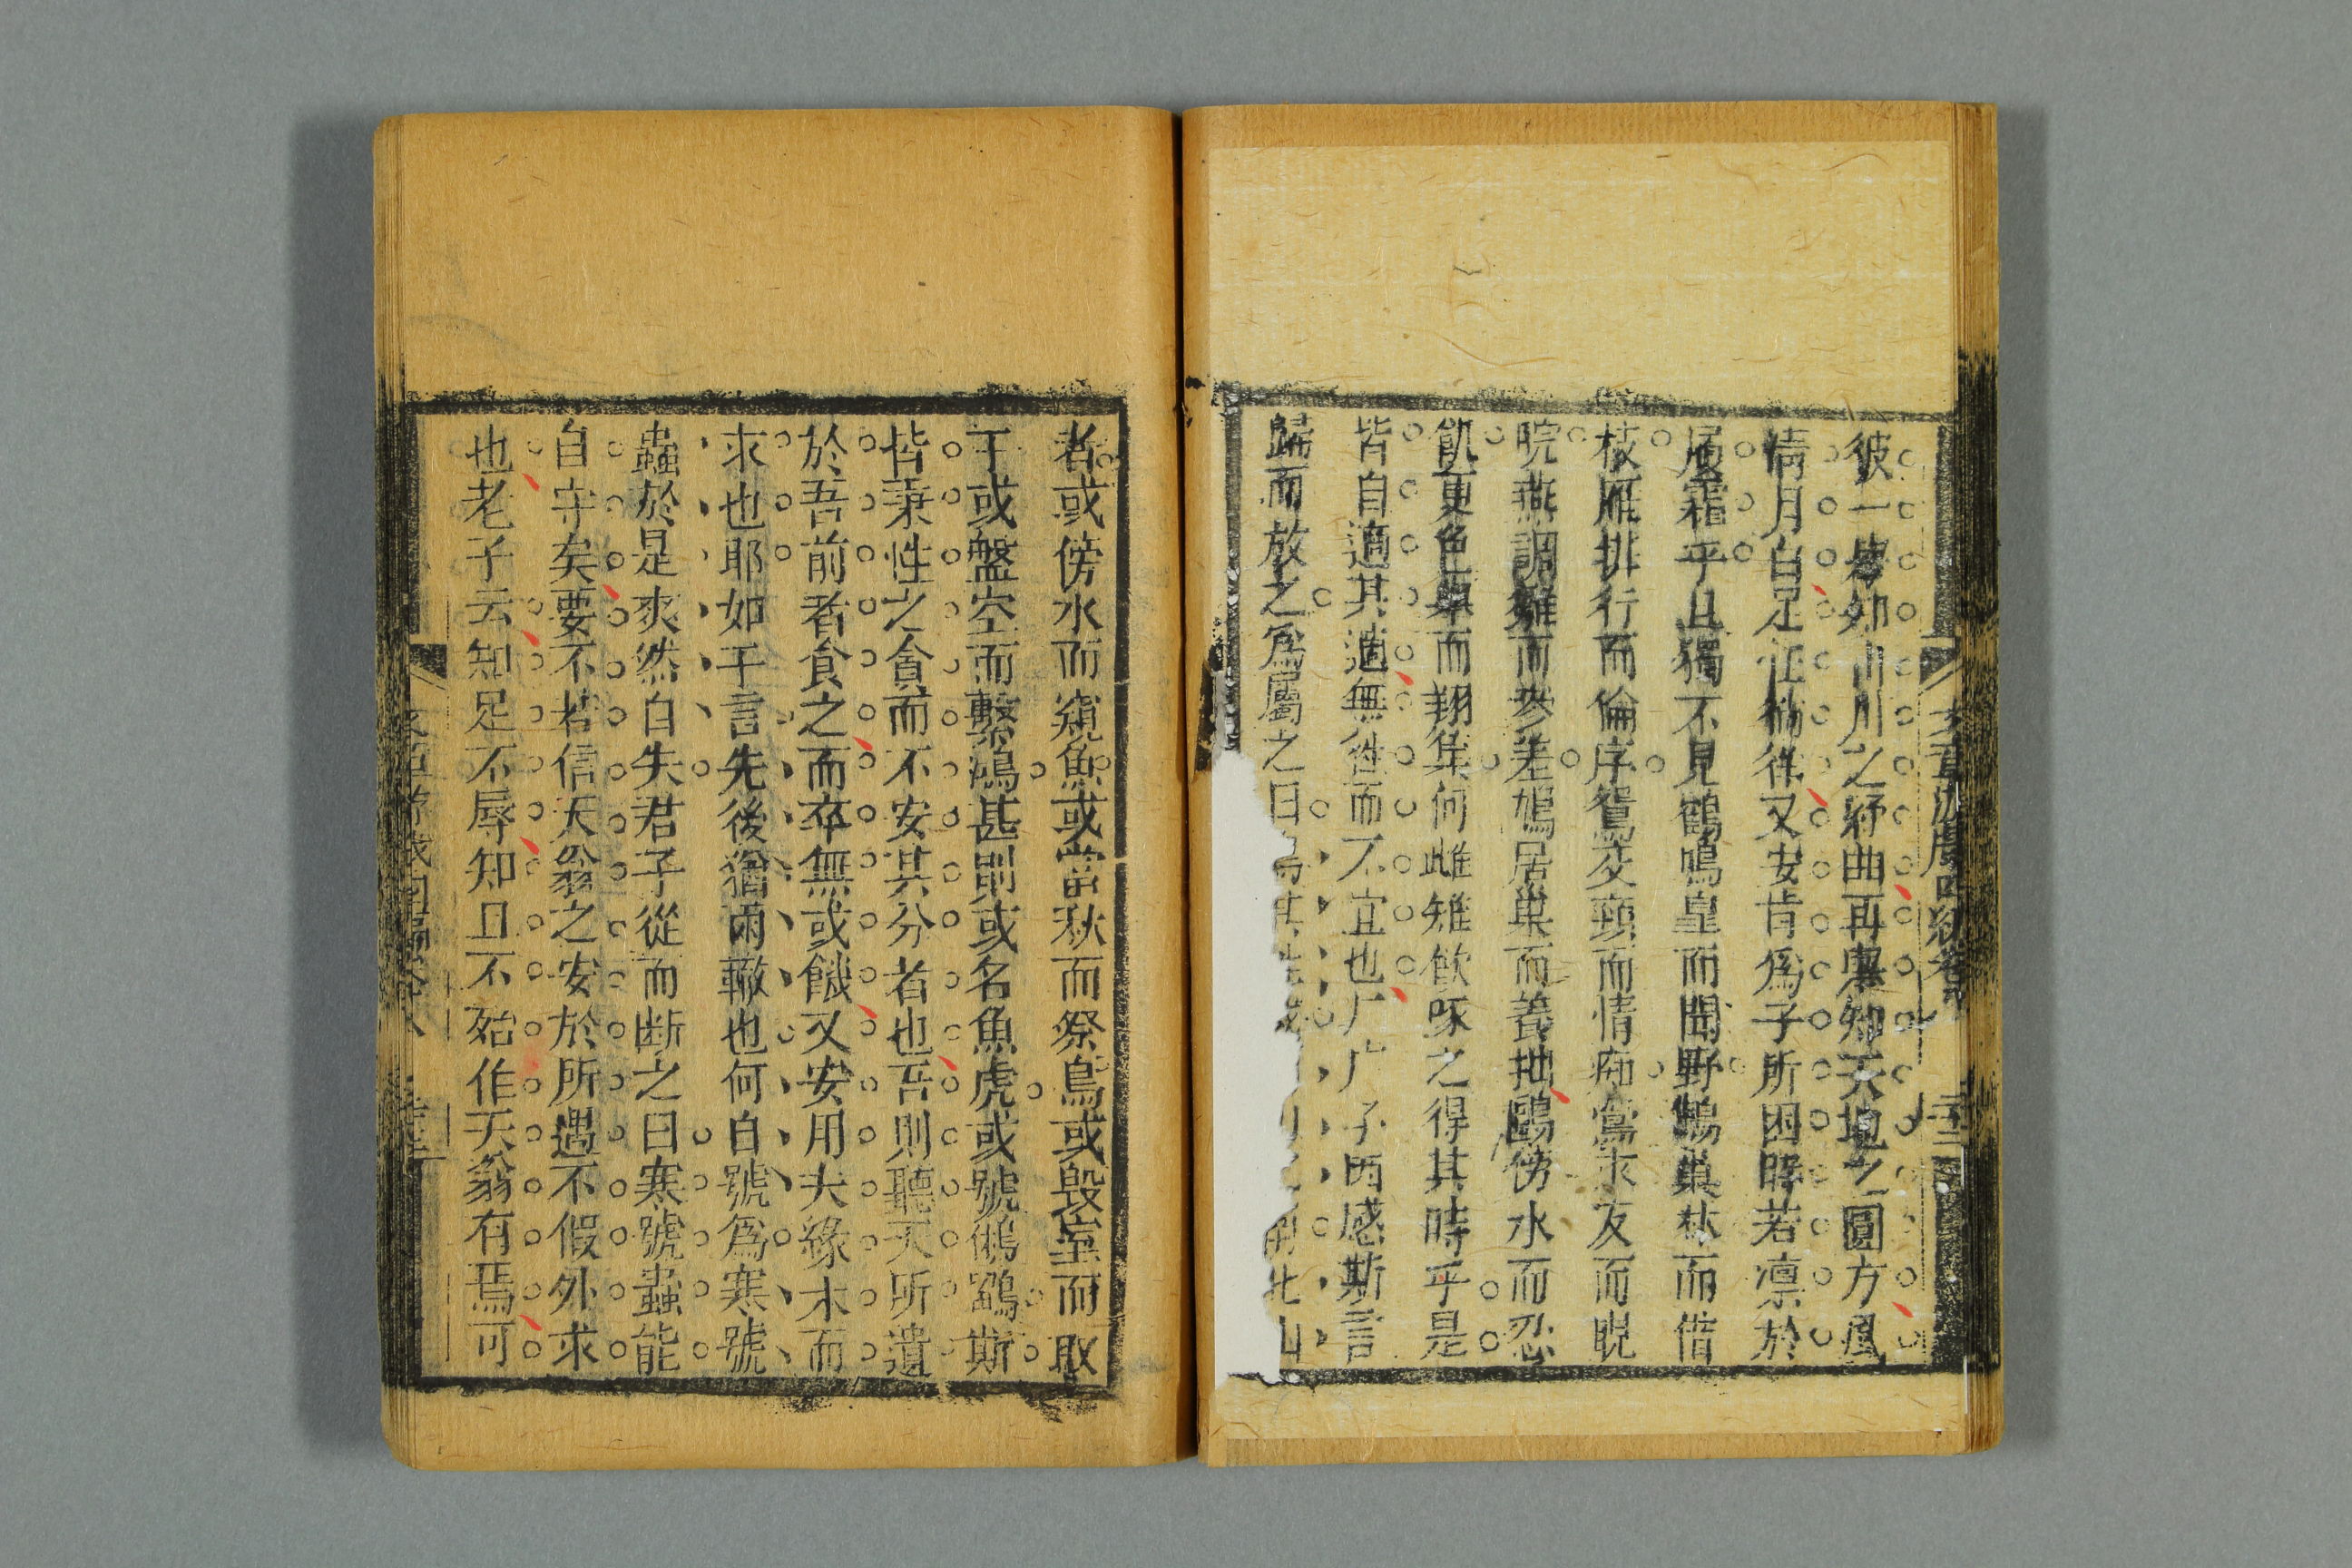 彼一舉知山川之紆曲再舉知天地之圓方風
清月白足任徜徉又安肯為子所困即若凜於
履霜乎且獨不見鶴鳴皇而聞野鷦巢林而借
枝雁排行而倫序鴛交頸而情痴鶯求友而睍
睆燕調雛而參差鳩居巢而養拙鷗傍水而忍
飢更色舉而翔集何雌雉飲啄之得其時乎是
皆自適其適無往而不宜也广广子西感斯言
歸而放之為屬之曰
北山
者或傍水而窺魚或當秋而祭鳥或毀室而取
子或盤空而繫鴻甚則或名魚虎或號鵂鶹斯
皆秉性之貪而不安其分者也吾則聽天所遺
於吾前者食之而卒無或餓又安用夫緣木而
求也耶如干言先後猶兩轍也何自號為寒號
蟲於是爽然自失君子從而断之曰寒號蟲能
自守矣要不若信天翁之安於所遇不假外求
也老子云知足不辱知且不殆信天翁有焉可